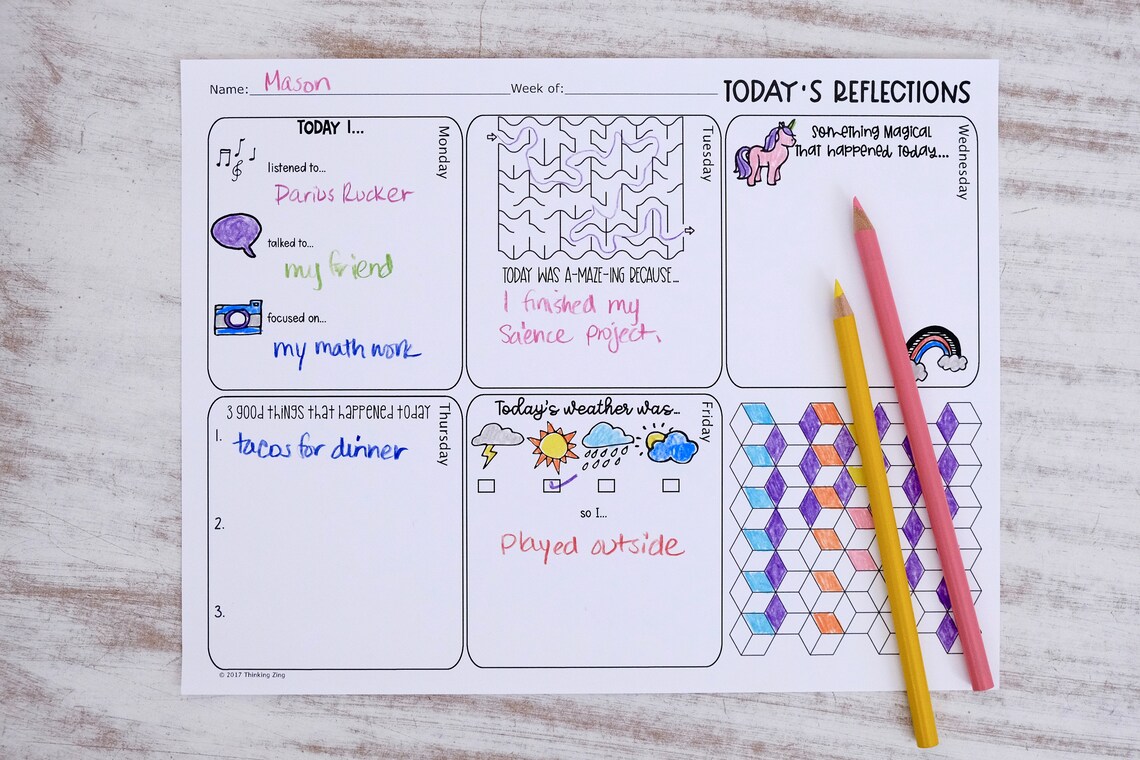 Name: Mason Week of: TODAY'S REFLECTIONS
Monday
TODAY I...
listened to...
Darius Rucker
talked to...
my friend
focused on...
my math work
Tuesday
TODAY WAS A-MAZE-ING BECAUSE...
I finished my
Science Project.
Wednesday
Something Magical
that happened today...
Thursday
3 good things that happened today
1. tacos for dinner
2.
3.
Friday
Today's weather was...
so I...
played outside
© 2017 Thinking Zing